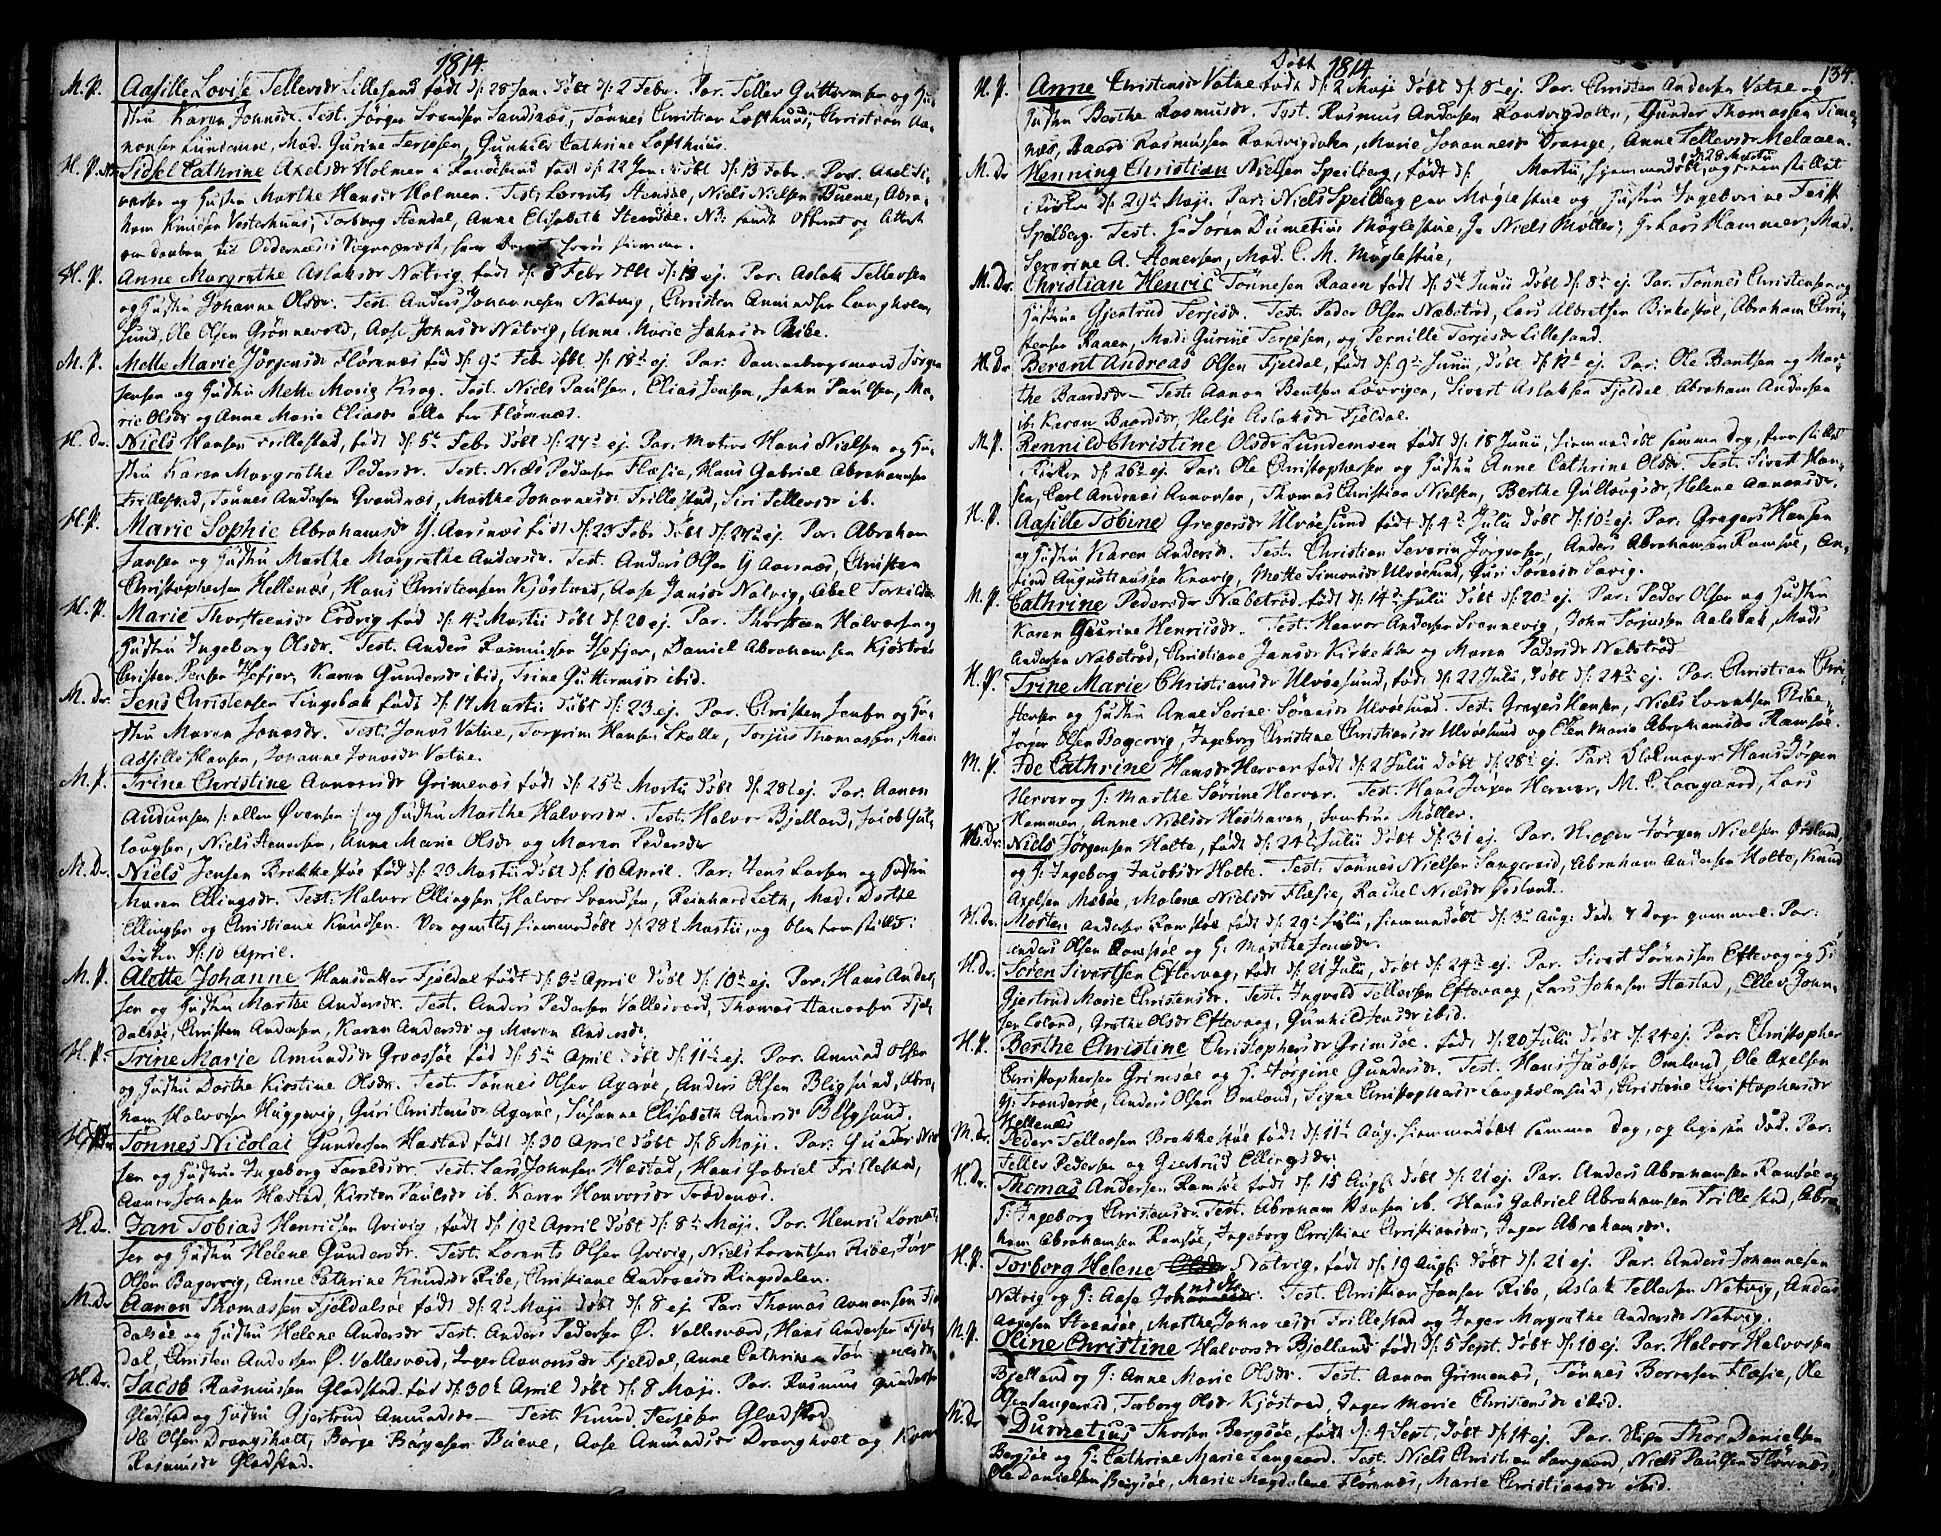 1814
M. P. Aasille Lovise Tellevsdr Lillesand født d: 28 Jan. døbt d: 2 Febr. Par. Tellev Guttormsen og Hu-
stru Karen Jonsdr. Test. Jørgen Svendsen Sandsnæs, Tønnes Christian Lofthuus, Christian Aa-
nonsen, Mad. Gurine Terjesen, Gunhild Cathrine Lofthuus.
H. P. Sidsel Cathrine Axelsdr Holmen født d: 22 Jan. døbt d: 13 Febr. Par. Axel Si-
versen og Hustru Marthe Hansdr Holmen. Test. Lorents Stendse, Niels Nielsen Buene, Abra-
ham Knudsen Vesterhuus, Torborg Stendal, Anne Elisabeth Stendse. NB: sendt Attest
om daaben til Oddernæs Sognepræst,
H. P. Anne Margrethe Aslaksdr Natvig født d: 8 Febr. døbt d: 13 ej. Par. Aslak Tellevsen
og Hustru Johanne Olsdr. Test. Anders Johannesen Natvig, Christen Anundsen Langholm-
sund, Ole Olsen Grønnevold, Aase Johnsdr Natvig, Anne Marie Jahnsdr Ribe.
M. P. Mette Marie Jørgensdr Flørenæs fød d: 9de Febr. døbt d: 18de ej. Par: Dannebrogsmand Jørgen
Jensen og Hustru Mette Marie Krog. Test. Niels Paulsen, Elias Jensen, John Paulsen, Ma-
rie Olsdr og Anne Marie Eliasdr alle fra Flørenæs.
H. Dr. Niels Hansen Trillestad, født d: 5te Febr. døbt d: 27de ej. Par. Hans Nielsen og Hu-
stru Karen Margrethe Pedersdr. Test. Niels Pedersen Flæsie, Hans Gabriel Abrahamsen
Trillestad, Tønnes Andersen Grandnæs, Marthe Johannesdr Trillestad, Siri Tellevsdr ib.
H. P. Marie Sophie Abrahamsdr Y. Aarsnæs født d: 23 Febr. døbt d: 27de ej. Par. Abraham
Jansen og Hustru Marthe Margrethe Andersdr. Test. Anders Olsen Y. Aarsnæs, Christen
Christophersen Hellenæs, Hans Christensen Kjøstved, Aase Jansdr Natvig, Abel Torkildsdr
H. P. Marie Thorsteensdr Eedvig fød d: 4de Martii døbt d: 20 ej. Par. Thorsteen Halvorsen og
Hustru Ingeborg Olsdr. Test. Anders Rasmussen Isefjer, Daniel Abrahamsen Kjøstvedt
Christen Jensen Isefjer, Karen Gundersdr ibid, Trine Guttormsdr ibid.
M. Dr. Jens Christensen Tingsbak født d: 17 Martii døbt d: 23 ej. Par. Christen Jensen og Hu-
stru Maren Jonasdr. Test. Jonas Vatne, Torgrim Hansen Skolle, Torjus Thomassen, Mad.
Adsille Hansen, Johanne Jonasdr Vatne.
M. P. Trine Christine Aanonsdr Grimenæs født d: 25de Martii døbt d: 28de ej. Par. Aanon
Audunsen /: eller Øvensen :/ og Hustru Marthe Halvorsdr. Test. Halvor Bjelland, Jacob Gul-
laugsen, Niels Stenersen, Anne Marie Olsdr og Maren Pedersdr
M. Dr. Niels Jensen Brekkestøe fød d: 23 Martii døbt d: 10 April. Par. Jens Larsen og Hustru
Maren Ellingsdr. Test. Halvor Ellingsen, Halvor Svendsen, Reinhard Leth, Mad. Dorthe
Ellingsen og Christiane Knudsen. Var hjemmedøbt d: 28de Martii, og blev fremstillet i
Kirken d: 10 April.
M. P. Alette Johanne Hansdatter Fjeldal født d: 9de April døbt d: 10de ej. Par. Hans Ander-
sen og Hustru Marthe Andersdr. Test. Anders Pedersen Vallesværd, Thomas Aanonsen Fjel-
dalsøe, Christen Andersen, Karen Andersdr og Maren Andersdr.
H. P. Trine Marie Amundsdr Groossøe fød d: 5te April døbt d: 11te ej. Par. Amund Olsen
og Hustru Dorthe Kirstine Olsdr. Test. Tønnes Olsen Agerøe, Anders Olsen Bligsund, Abra-
ham Halvorsen Huggevig, Guri Christensdr Agerøe, Susanne Elisabeth Andersdr Bligsund.
Tønnes Nicolai Gundersen Hæstad født d: 30 April døbt d: 8 Maji. Par. Gunder Niel-
sen og Hustru Ingeborg Taraldsdr. Test. Lars Johnsen Hæstad, Hans Gabriel Trillestad,
Aanon Johnsen Hæstad, Kirsten Paulsdr ib. Karen Havorsdr Trødenæs.
H. Dr. Jan Tobias Henricsen Qvivig, født d: 19de April døbt d: 8de Maji. Par. Henric Lorent-
sen og Hustru Helene Gundersdr. Test. Lorents Olsen Qvivig, Niels Lorentsen Ribe, Jørgen
Olsen Bagervig, Anne Cathrine Knudsdr Ribe, Christiane Andreasdr Ringsdalen.
M. Dr. Aanon Thomassen Fjeldalsøe født d: 2de Maji døbt d: 8 ej. Par. Thomas Aanonsen Fjel-
dalsøe og Hustru Helene Andersdr. Test. Anders Pedersen Ø. Vallesværd, Hans Andersen Fjel-
dal, Christen Andersen Ø. Vallesværd, Inger Aanonsdr Fjeldal, Anne Cathrine Tønnesdr
H. Dr. Jacob Rasmussen Gladstad fød d: 30te April døbt d: 8 Maji. Par. Rasmus Gundersen
Gladstad og Hustru Gjertrud Amundsdr. Test. Knud Terjesen Gladstad
Ole Olsen Drangsholt, Børge Børgesen Buene, Aase Amundsdr Drangsholt og
Rasmusdr Gladstad.
Døbt 1814 134.
H. P. Anne Christensdr Vatne født d: 2 Maji døbt d: 8de ej. Par. Christen Andersen Vatne og
Hustru Berthe Rasmusdr. Test. Rasmus Andersen Randvigdalen, Gunder Thomassen Time-
næs, Baard Rasmussen Randvigdalen, Marie Johannesdr Drange, Anne Tellevsdr Melaaen.
M. Dr. Henning Christian Nielsen Speilberg, født d: Martii, hjemmedøbt d: 28 Martii, og fremstillet
i Kirken d: 29de Maji. Par: Niels Speilberg paa Møglestue og Hustru Ingeborine Feist
Speilberg. Test. Hr Søren Dumetius Møglestue, Hr Niels Møller, Hr Lars Hammer, Mad.
Severine A. Stenersen, Mad. C. M. Møglestue,
M. Dr. Christian Henric Tønnesen Kaaen født d: 5te Junii døbt d: 8de ej. Par. Tønnes Christensen og
Hustrue Gjertrud Terjesdr. Test. Peder Olsen Næbetrød, Lars Albretsen Birkedal, Abraham Chri-
stensen Kaaen, Mad: Gurine Terjesen, og Pernille Terjesdr Lillesand.
H. Dr. Berent Andreas Olsen Fjeldal, født d: 9de Junii, døbt d: 12te ej. Par: Ole Bentsen og Mar-
the Baardsdr. Test. Aanon Bentsen Løvrigen, Sivert Aslaksen Fjeldal, Abraham Andersen
ib. Karen Baardsdr, Helje Aslaksdr Fjeldal.
M. P. Rennild Christine Olsdr Lundemoen født d: 18 Junii, hjemmedøbt samme Dag, fremstillet
i Kirken d: 26de ej. Par: Ole Christophersen og Hustru Anne Cathrine Olsdr. Test. Sivert Han-
sen, Carl Andreas Aanonsen, Thomas Christian Nielsen, Berthe Gullaugsdr, Helene Aanonsdr.
H. P. Aasille Tobine Gregersdr Ulvøesund født d: 4de Julii døbt d: 10de ej. Par: Gregers Hansen
og Hustru Karen Andersdr. Test. Christian Severin Jørgensen, Anders Abrahamsen Ramsøe, An-
sind Augustinussen Knavig, Mette Simonsdr Ulvøesund, Guri Sørensdr Savig.
M. P. Cathrine Pedersdr Næbetrød født d: 14de Julii døbt d: 20de ej. Par: Peder Olsen og Hustru
Karen Gurine Henricsdr. Test. Havor Andersen Siønnevig, John Torjussen Aalebæk, Mads
Andersen Næbetrød, Christiane Jansdr Kirkekleiv og Maren Pedersdr Næbetrød
H. P. Trine Marie Christiansdr Ulvøesund, født d: 22 Julii, døbt d: 24de ej. Par. Christian Chri-
stensen og Hustru Anne Serine Sørensdr Ulvøesund. Test. Gregers Hansen, Niels Lorentsen Ribe,
Jørgen Olsen Bagervig, Ingeborg Christine Christiansdr Ulvøesund og Elen Marie Abrahamsdr Ramsøe.
M. P. Ide Cathrine Hansdr Herver født d: 2 Julii døbt d: 28de ej. Par: Blokmager Hans Jørgen
Herver og H: Marthe Søvrine Herver. Test. Hans Jørgen Herver, M. C. Langaard, Lars
Hammer, Anne Nielsdr Hæshaven, Møller.
M. Dr. Niels Jørgensen Holte, født d: 24de Julii døbt d: 31 ej. Par. Jørgen Nielsen Øisland
og H: Ingeborg Jacobsdr Holte. Test: Tønnes Nielsen Langereid, Abraham Andersen Holte, Knud
Axelsen Mæbøe, Malene Nielsdr Flæsie, Rachel Nielsdr Øisland.
H. Dr. Morten Andersen Ramsøe født d: 29de Julii, hjemmedøbt d: 3de Aug: død 7 Dage gammel. Par:
Anders Olsen Ramsøe og H: Marthe Jensdr.
H. Dr. Søren Sivertsen Eftevaag, født d: 21 Julii, døbt d: 24de ej. Par. Sivert Sørensen Eftevaag og H:
Gjertrud Marie Christensdr. Test. Ingvald Tellevsen Eftevaag, Lars Johnsen Hæstad, Ellev John-
sen Loland, Grethe Olsdr Eftevaag, Gunhild Jensdr ibid.
H. P. Berthe Christine Christophersdr Grimsøe født d: 20 Julii døbt d: 24 ej. Par: Christopher
Christophersen Grimsøe og H. Torgine Gundersdr. Test. Hans Jacobsen Omland, Ole Axelsen
N: Trandersø, Anders Olsen Omland, Signe Christophersdr Langholmsund, Christine Christophersdr
Hellenæs
M. Dr. Peder Tellevsen Brekkestøe født d: 11te Aug. hjemmedøbt samme Dag, og ligesaa død. Par.
Tellev Pedersen og Gjertrud Ellingsdr.
H. Dr. Thomas Andersen Ramsøe født d: 15 Augst døbt d: 21 ej. Par. Anders Abrahamsen Ramsøe og
H: Ingeborg Christensdr. Test. Abraham Hansen ib. Hans Gabriel Abrahamsen Trillestad, Abra-
ham Abrahamsen Ramsøe, Ingeborg Christine Christiansdr, Inger Abrahamsdr.
H. P. Torborg Helene Natvig, født d: 19 Augst døbt d: 21 ej. Par. Anders Johannesen
Natvig og H: Aase Jonsdr. Test. Christian Jansen Ribe, Aslak Tellevsen Natvig, Anders
Aagesen Steensøe, Marthe Johannesdr Trillestad og Inger Margrethe Andersdr Natvig.
M. P. Oline Christine Halvorsdr Bjelland født d: 5 Sept. døbt d: 10 ej. Par. Halvor Halvorsen
Bjelland og H: Anne Marie Olsdr. Test. Aanon Grimenæs, Tønnes Børresen Flæsie, Ole
Olsen Langereid, Torborg Olsdr Kjøstved, Inger Marie Christensdr ibid.
M. Dr. Dumetius Thorsen Bergsøe, født d: 4 Sept. døbt d: 14 ej. Par. Thor Danielsen
Bergsøe og H: Cathrine Marie Langaard. Test. Niels Christian Langaard, Niels Paulsen Flørenæs,
Ole Danielsen Bergsøe, Marie Magdalene Flørenæs, Marie Christiansdr ibid.